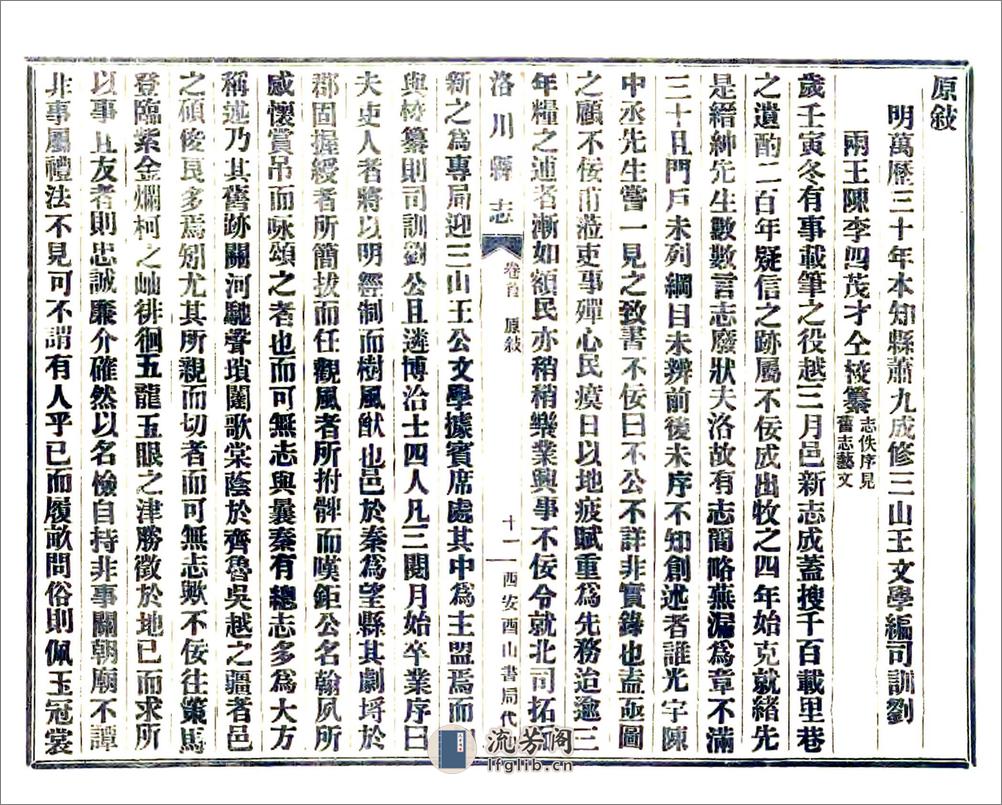 原敘
明萬曆三十年本知縣蕭九成修三山王文學編司訓劉
兩王陳李四茂才仝校纂志佚序見舊志藝文
歲壬寅冬有事載筆之役越三月邑新志成蓋搜千百載里巷
之遺酌二百年疑信之跡屬不佞成出牧之四年始克就緒先
是縉紳先生數數言志廢狀夫洛故有志簡略蕪漏為章不滿
三十且門戶未列綱目未辨前後未序不知創述者誰光宇陳
中丞先生嘗一見之致書不佞曰不公不詳非實錄也盍亟圖
之顧不佞甫蒞吏事殫心民瘼日以地疲賦重為先務迨逾三
年糧之逋者漸如額民亦稍稍樂業興事不佞令就北司拓而
新之為專局迎三山王公文學據賓席處其中為主盟焉而
與校纂則司訓劉公且遴博洽士四人凡三閱月始卒業序曰
夫吏人者將以明經制而樹風猷也邑於秦為望縣其劇埒於
郡固握綬者所簡拔而任觀風者所拊髀而嘆鉅公名翰夙所
感懷賞吊而咏頌之者也而可無志與曩秦有總志多為大方
稱述乃其舊跡關河馳聲瑣闥歌棠蔭於齊魯吳越之疆者邑
之碩俊良多焉矧尤其所親而切者而可無志歟不佞往策馬
登臨紫金爛柯之岫徘徊五龍玉眼之津勝徵於地已而求所
以事且友者則忠誠廉介確然以名檢自持非事關朝廟不譚
非事屬禮法不見可不謂有人乎已而履畝問俗則佩玉冠裳
洛川縣志
卷首 原敘
十一
西安酉山書局代
流芳閣
lfglib.cn